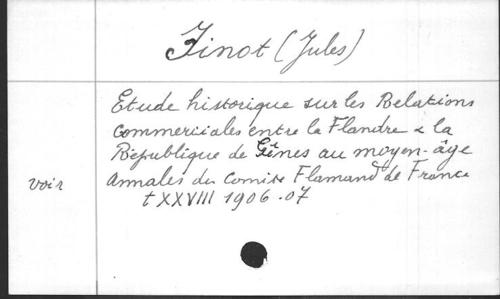 Finot (Jules)
Etude historique sur les Relations
commerciales entre la Flandre & la
République de Gênes au moyen-âge
voir Annales du Comité Flamand de France
t XXVIII 1906-07